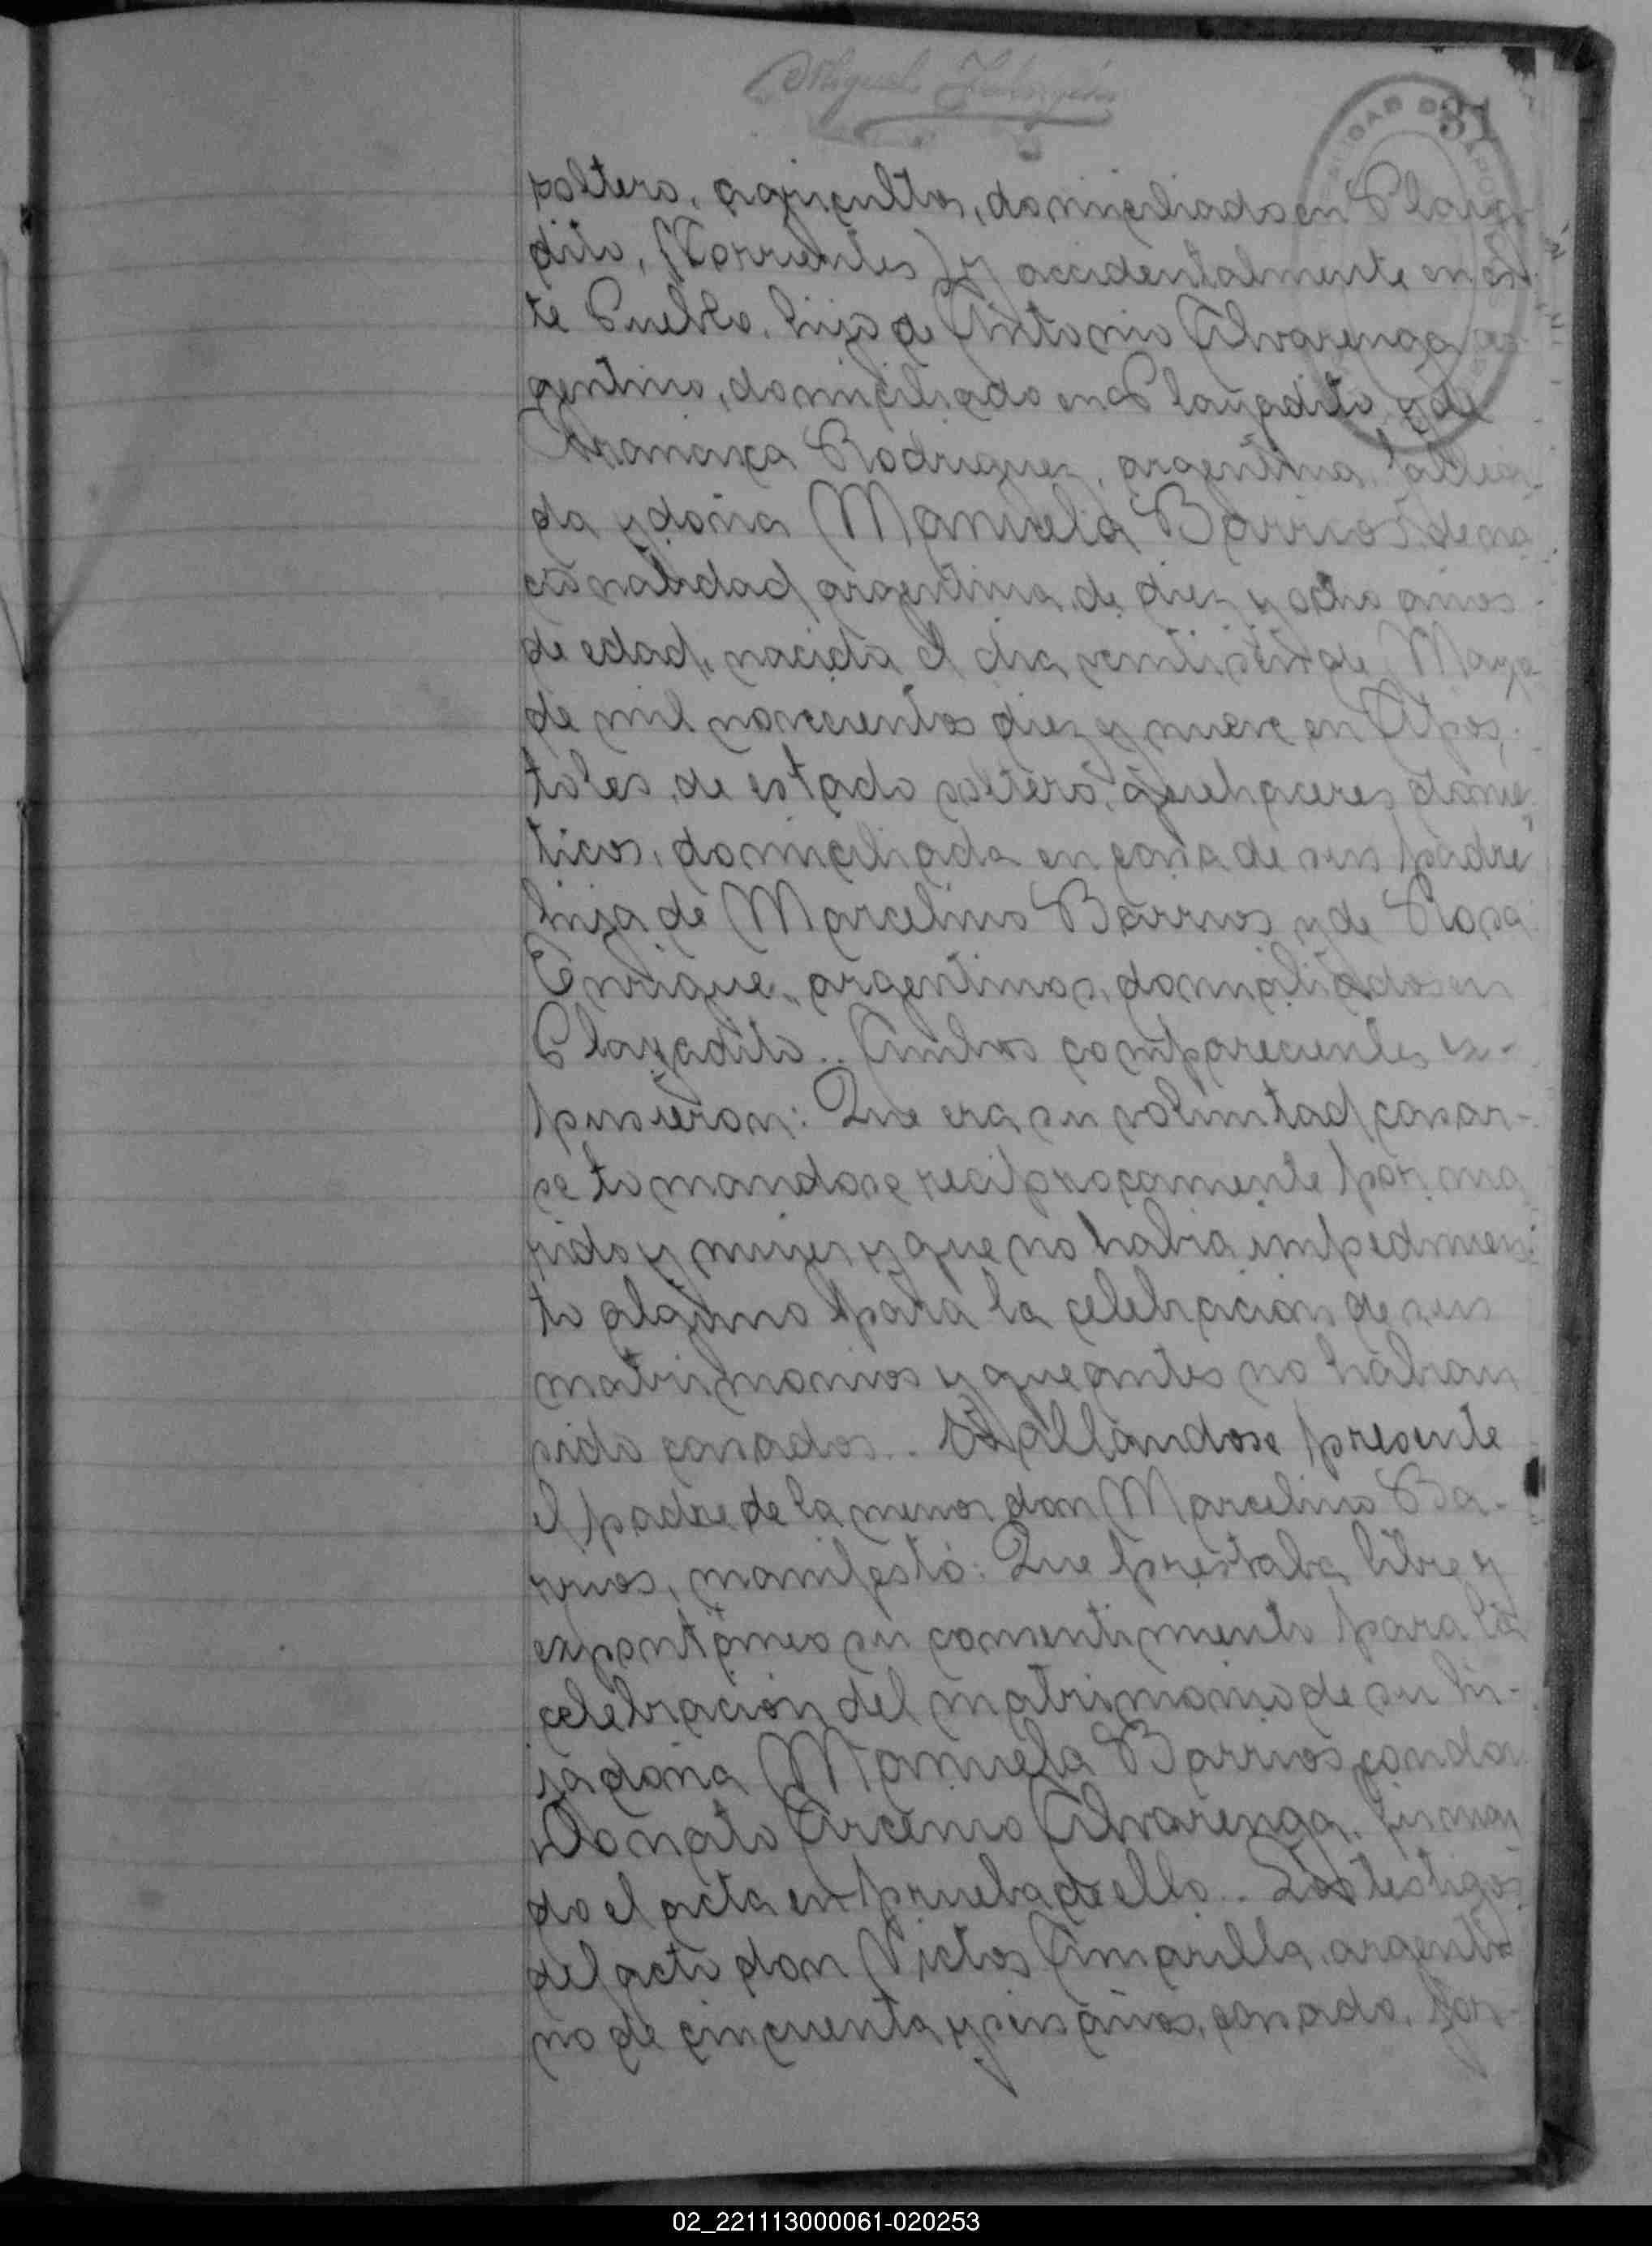 Miguel
31
soltero, agricultor, domiciliado en Playa
dito, Corrientes y accidentalmente en es
te Pueblo, hijo de Antonio Alvarenga ar
gentino, domiciliado en Playadito y de
Rodriguez, argentina, falleci
da y doña Manuela Barrios de na
cionalidad argentina, de diez y ocho años
de edad, nacida el dia de Mayo
de mil novecientos diez y nueve en Após
toles, de estado soltera, quehaceres domés
ticos, domiciliada en casa de sus padres
hija de Marcelino Barrios y de Rosa
Enrique, argentinos, domiciliados en
Playadito.. Ambos comparecientes ex-
pusieron: Que era su voluntad casar-
se tomandose reciprocamente por ma
rido y mujer y que no habia impedimen
to alguno para la celebracion de sus
matrimonios y que antes no habian
sido casados.. Hallandose presente
el padre de la menor don Marcelino Ba-
rrios, manifestó: Que prestaba libre y
expontáneo su consentimiento para la
celebración del matrimonio de su hi-
ja doña Manuela Barrios con don
Donato Arcenio Alvarenga, firman
do el acta en prueba de ello.. Los testigos
del acto don Victor Amarilla, argenti
no de cincuenta y seis años, casado, jor-
02_221113000061-020253